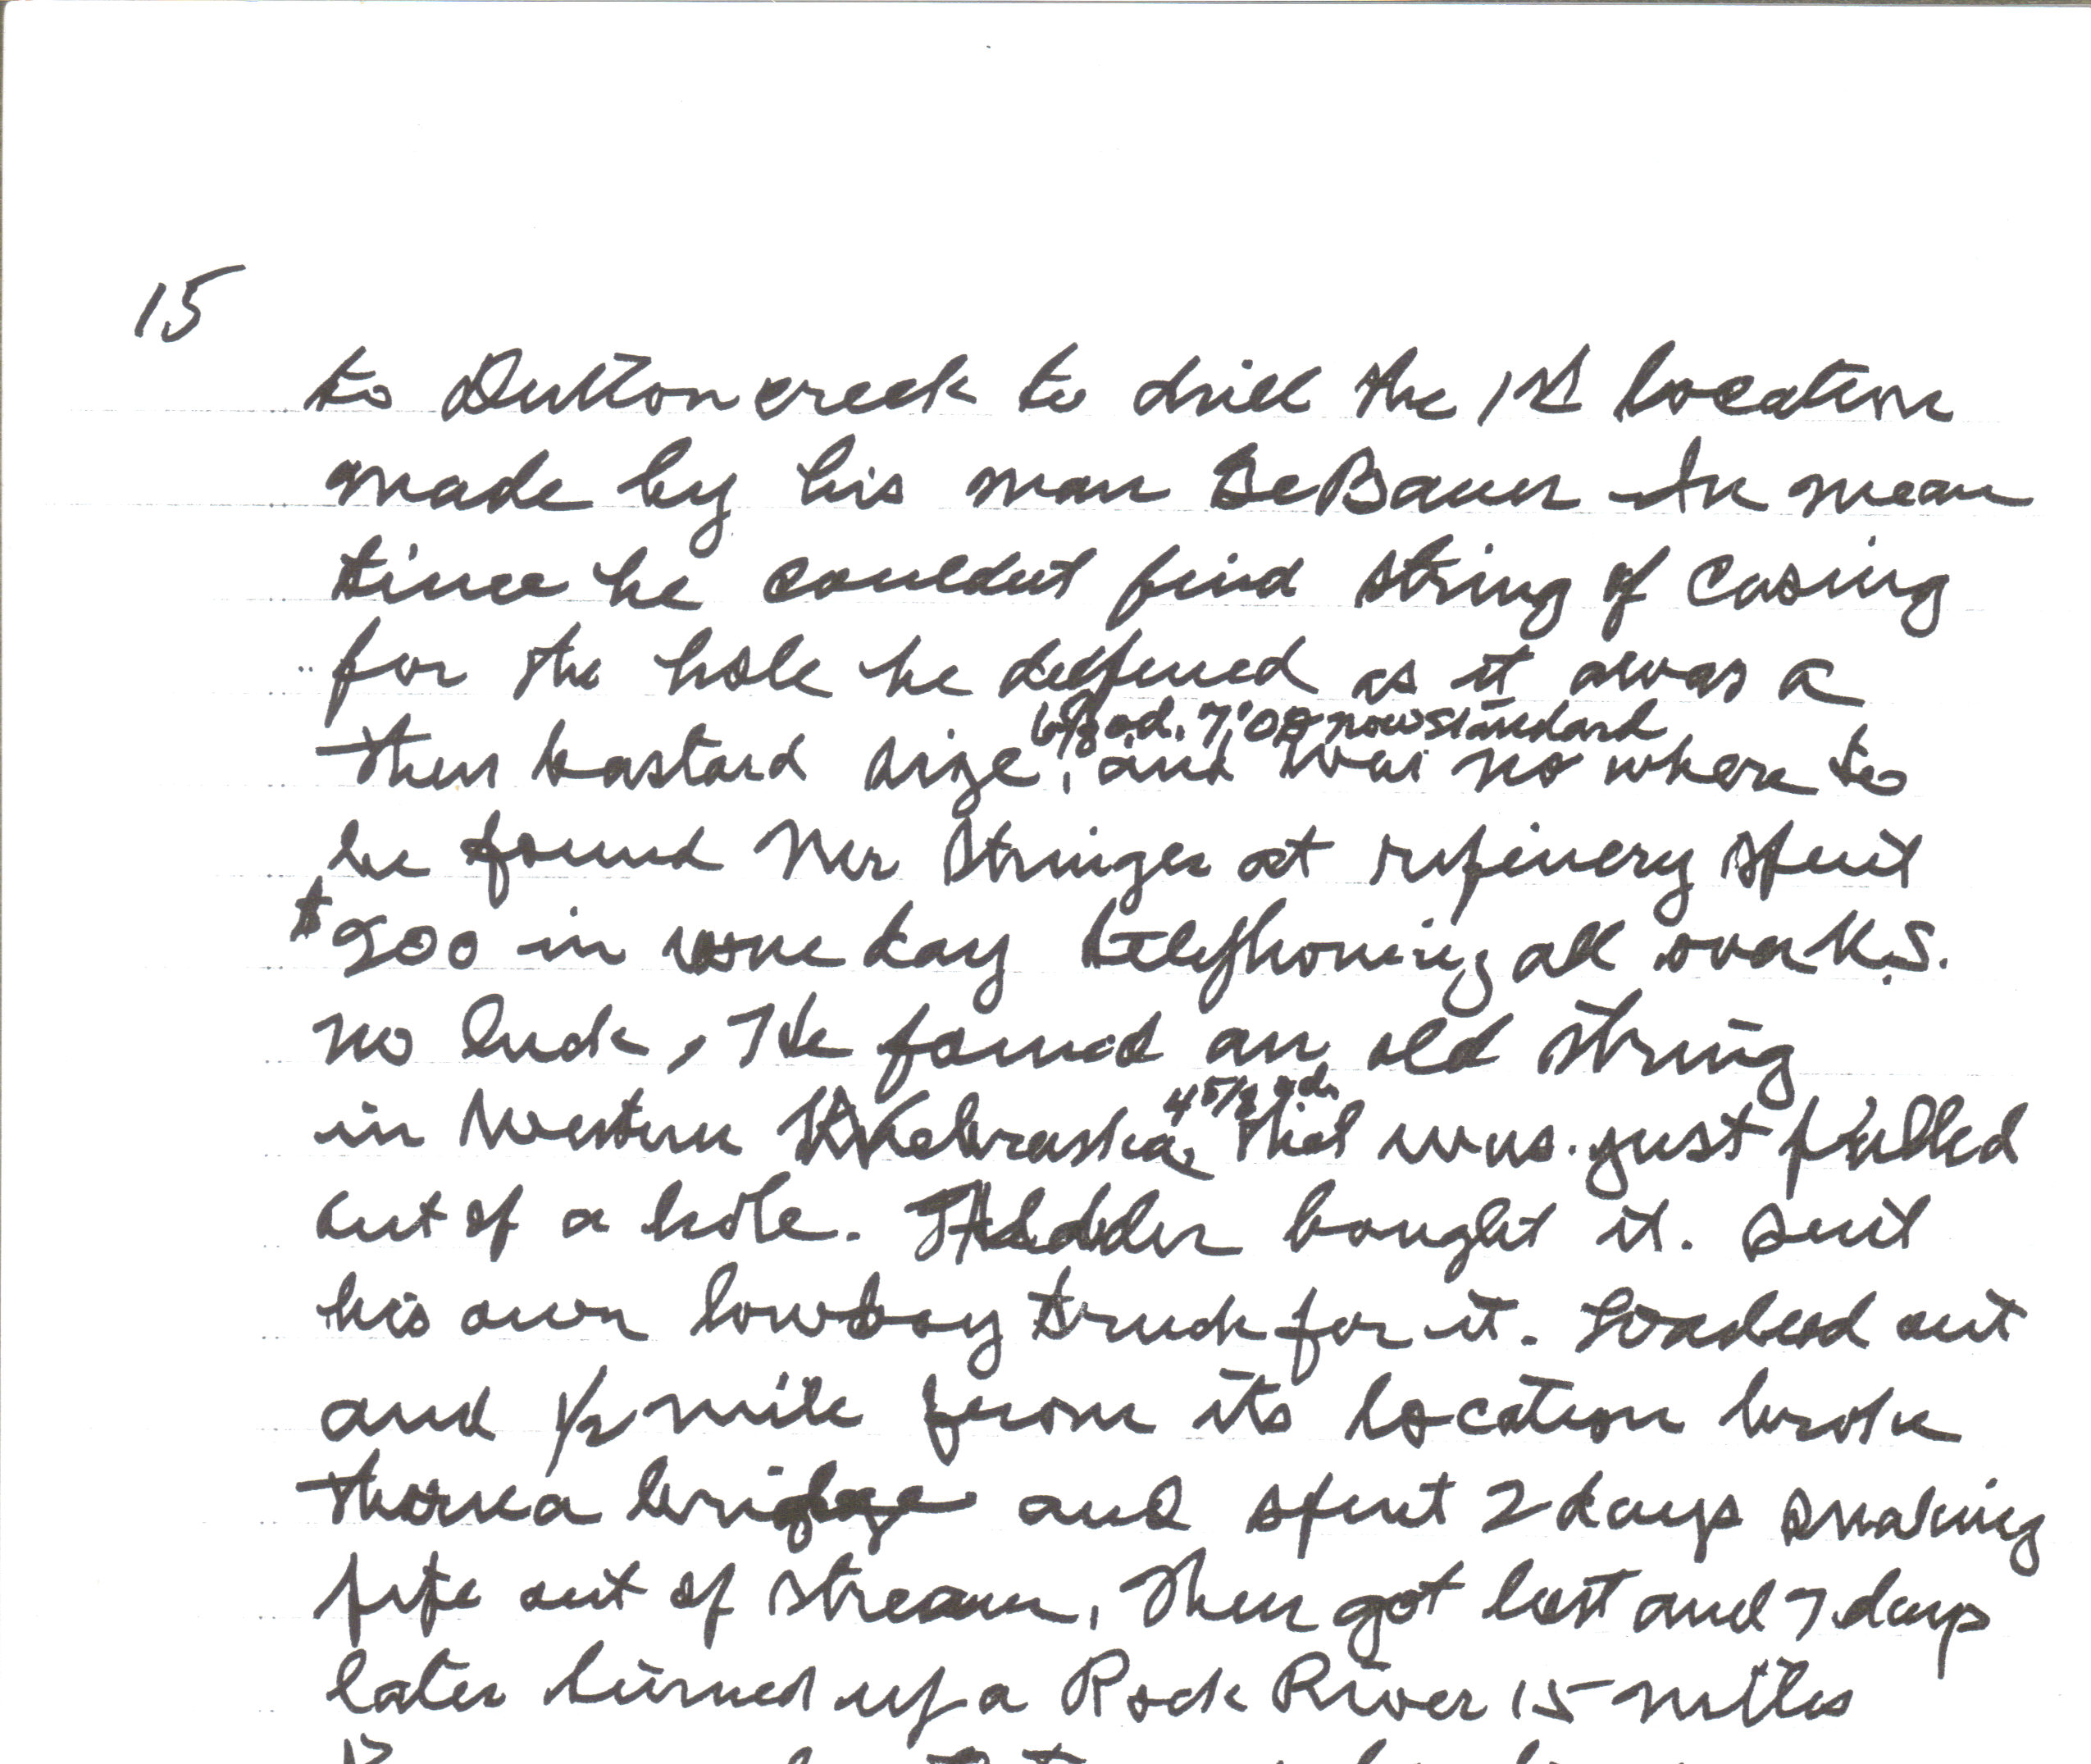 15
to Dutton creek to drill the 1st location
made by his man DeBauer In mean
time he couldnt find string of casing
for the hole he deepened as it was a
6 5/8 od. 7" OD now standard
then bastard size, and was no where to
be found Mr Stringer at refinery spent
$200 in one day telephoning all over U.S.
no luck, He found an old string
4 5/8 od.
in Western Nebraska, that was just pulled
out of a hole. bought it. Sent
his own lowboy truck for it. Loaded out
and 1/2 mile from its location broke
thru a bridge and spent 2 days snaking
pipe out of stream, Then got lost and 7 days
later turned up a Rock River 15 miles